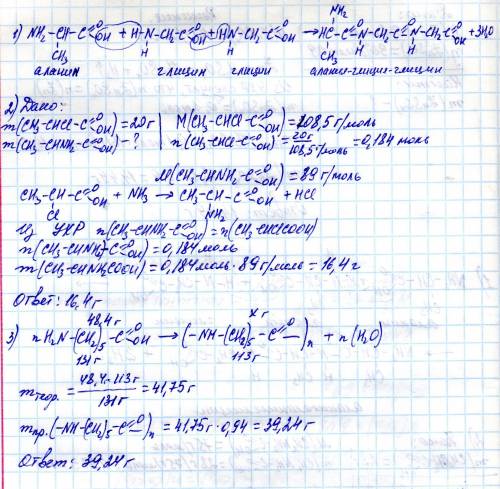 1) NH₂-CH-C=O OH + H-N-CH₂-C=O OH + H N-CH₂-C=O OH → HC-C=O N-CH₂-C=O N-CH₂-C=O OH + 3H₂O
NH₂
CH₃ H H CH₃ H H
аланин глицин глицин аланин-глицин-глицин
2) Дано:
m(CH₃-CHCl-C=O OH) = 20г | M(CH₃-CHCl-C=O OH) = 108,5 г/моль
m(CH₃-CHNH₂-C=O OH) - ? | n(CH₃-CHCl-C=O OH) = 20г / 108,5 г/моль = 0,184 моль
M(CH₃-CHNH₂-C=O OH) = 89 г/моль
CH₃-CH-C=O OH + NH₃ → CH₃-CH-C=O OH + HCl
Cl NH₂
Из УХР n(CH₃-CHNH₂-C=O OH) = n(CH₃-CHClCOOH)
n(CH₃-CHNH₂-C=O OH) = 0,184 моль
m(CH₃-CHNH₂COOH) = 0,184 моль · 89 г/моль = 16,4 г
Ответ: 16,4 г
48,4 г x г
3) n H₂N-(CH₂)₅-C=O OH → (-NH-(CH₂)₅-C=O -)n + n(H₂O)
131г 113г
mтеор. = 48,4·113г / 131г = 41,75 г
mпр.(-NH-(CH₂)₅-C=O -)n = 41,75 г · 0,94 = 39,24 г
Ответ: 39,24 г